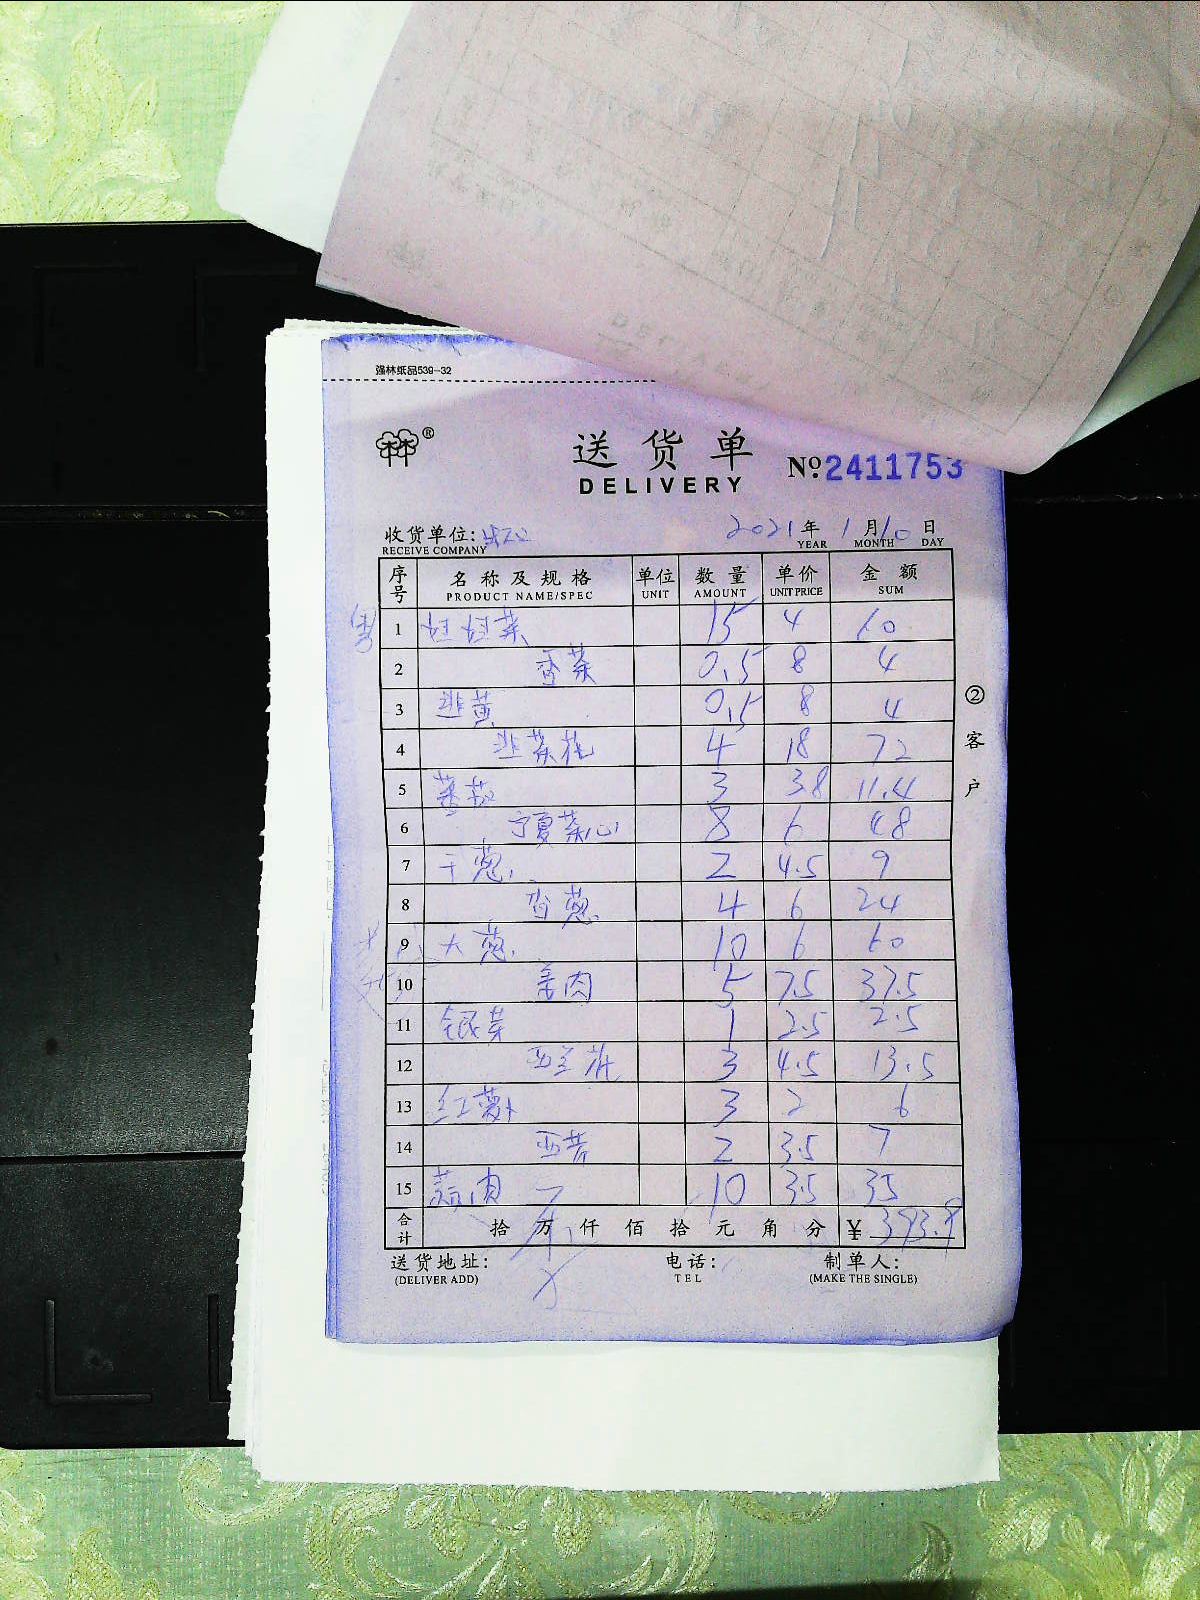 强林纸品539-32
送货单
DELIVERY
№ 2411753
收货单位: 2021年1月10日
RECEIVE COMPANY YEAR MONTH DAY
序号 名称及规格 单位 数量 单价 金额
PRODUCT NAME/SPEC UNIT AMOUNT UNIT PRICE SUM
1 娃娃菜 15 4 60
2 香菜 0.5 8 4
3 韭黄 0.5 8 4
4 韭菜花 4 18 72
5 3 3.8 11.4
6 宁夏菜心 8 6 48
7 干葱 2 4.5 9
8 香葱 4 6 24
9 大葱 10 6 60
10 姜肉 5 7.5 37.5
11 银芽 1 2.5 2.5
12 西兰花 3 4.5 13.5
13 红萝卜 3 2 6
14 西芹 2 3.5 7
15 蒜肉 10 3.5 35
合计 拾万仟佰拾元角分 ¥ 393.9
送货地址: 电话: 制单人:
(DELIVER ADD) TEL (MAKE THE SINGLE)
②客户